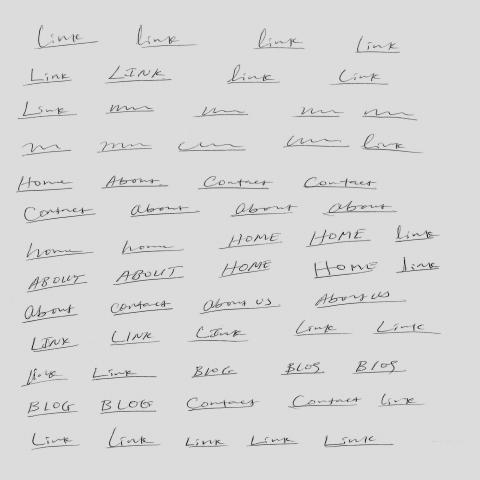 Link link link Link
Link LINK link Link
Link
link
Home About Contact Contact
Contact About About About
home home HOME HOME link
ABOUT ABOUT HOME HOME link
About Contact About us About us
LINK LINK LINK Link Link
link Link BLOG BLOG BLOG
BLOG BLOG Contact Contact link
Link Link Link Link Link